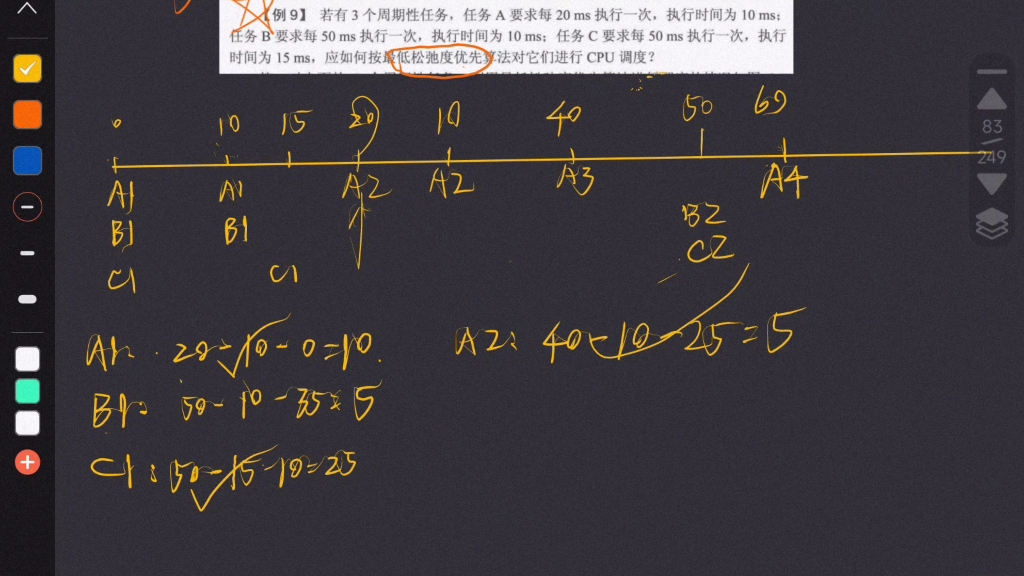 【例 9】 若有 3 个周期性任务，任务 A 要求每 20 ms 执行一次，执行时间为 10 ms；
任务 B 要求每 50 ms 执行一次，执行时间为 10 ms；任务 C 要求每 50 ms 执行一次，执行
时间为 15 ms，应如何按最低松弛度优先算法对它们进行 CPU 调度？
0 10 15 20 10 40 50 60
A1 A1 A2 A2 A3 A4
B1 B1 B2
C1 C1 C2
83
249
A1: 20-10-0=10. A2: 40-10-25=5
B1: 50-10-35=5
C1: 50-15-10=25